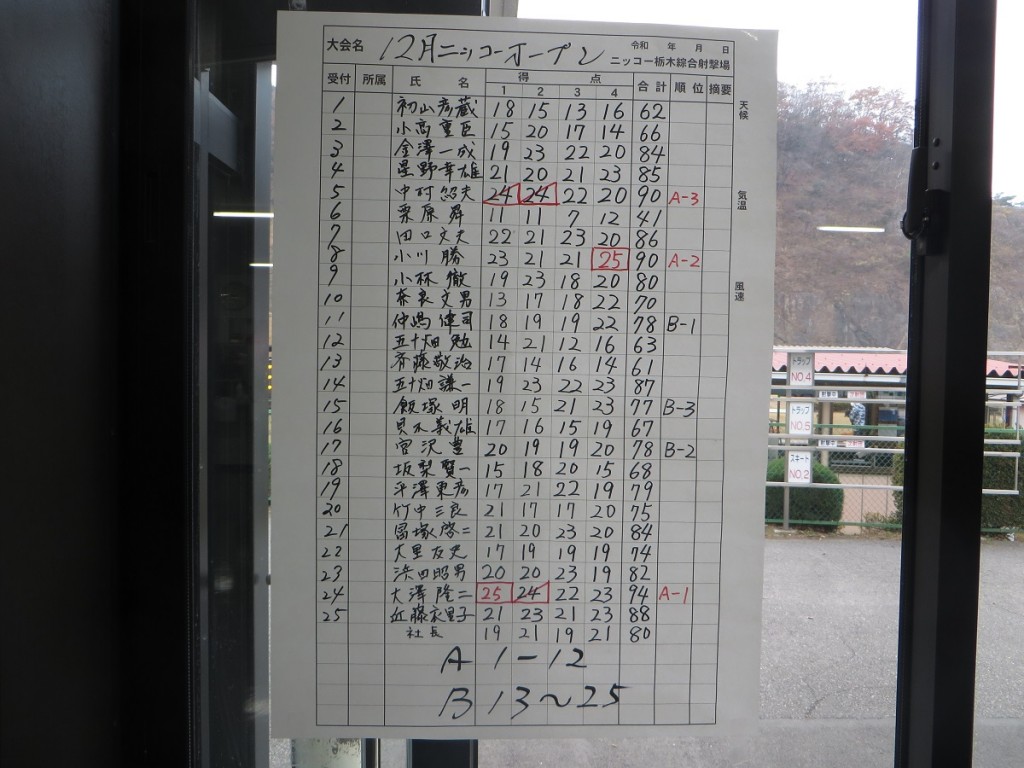 大会名 12月ニッコーオープン 令和 年 月 日
ニッコー栃木綜合射撃場
受付 所属 氏 名 得 点 合計 順位 摘要
1 2 3 4
1 初山彦蔵 18 15 13 16 62
2 小高重臣 15 20 17 14 66
3 金澤一成 19 23 22 20 84
4 星野幸雄 21 20 21 23 85
5 中村紹夫 24 24 22 20 90 A-3
6 栗原舜 11 11 7 12 41
7 田口文夫 22 21 23 20 86
8 小川勝 23 21 21 25 90 A-2
9 小林徹 19 23 18 20 80
10 奈良文男 13 17 18 22 70
11 仲嶋偉司 18 19 19 22 78 B-1
12 五十畑勉 14 21 12 16 63
13 斉藤敬治 17 14 16 14 61
14 五十畑謙一 19 23 22 23 87
15 飯塚明 18 15 21 23 77 B-3
16 貝木義雄 17 16 15 19 67
17 宮沢豊 20 19 19 20 78 B-2
18 坂梨賢一 15 18 20 15 68
19 平澤東彦 17 21 22 19 79
20 竹中三良 21 17 17 20 75
21 冨塚啓二 21 20 23 20 84
22 大里友史 17 19 19 19 74
23 浜田昭男 20 20 23 19 82
24 大澤隆二 25 24 22 23 94 A-1
25 近藤衣里子 21 23 21 23 88
社長 19 21 19 21 80
A 1-12
B 13~25
天候
気温
風速
トラップ
NO.4
トラップ
NO.5
スキート
NO.2